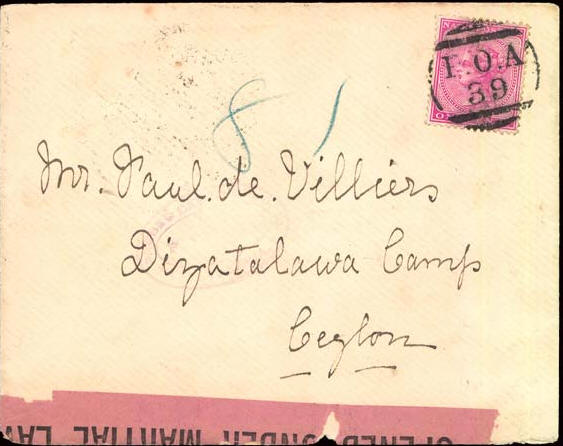 P.O.A
39
8 1
Mr. Paul. de. Villiers
Diyatalawa Camp
Ceylon
OPENED UNDER MARTIAL LAW